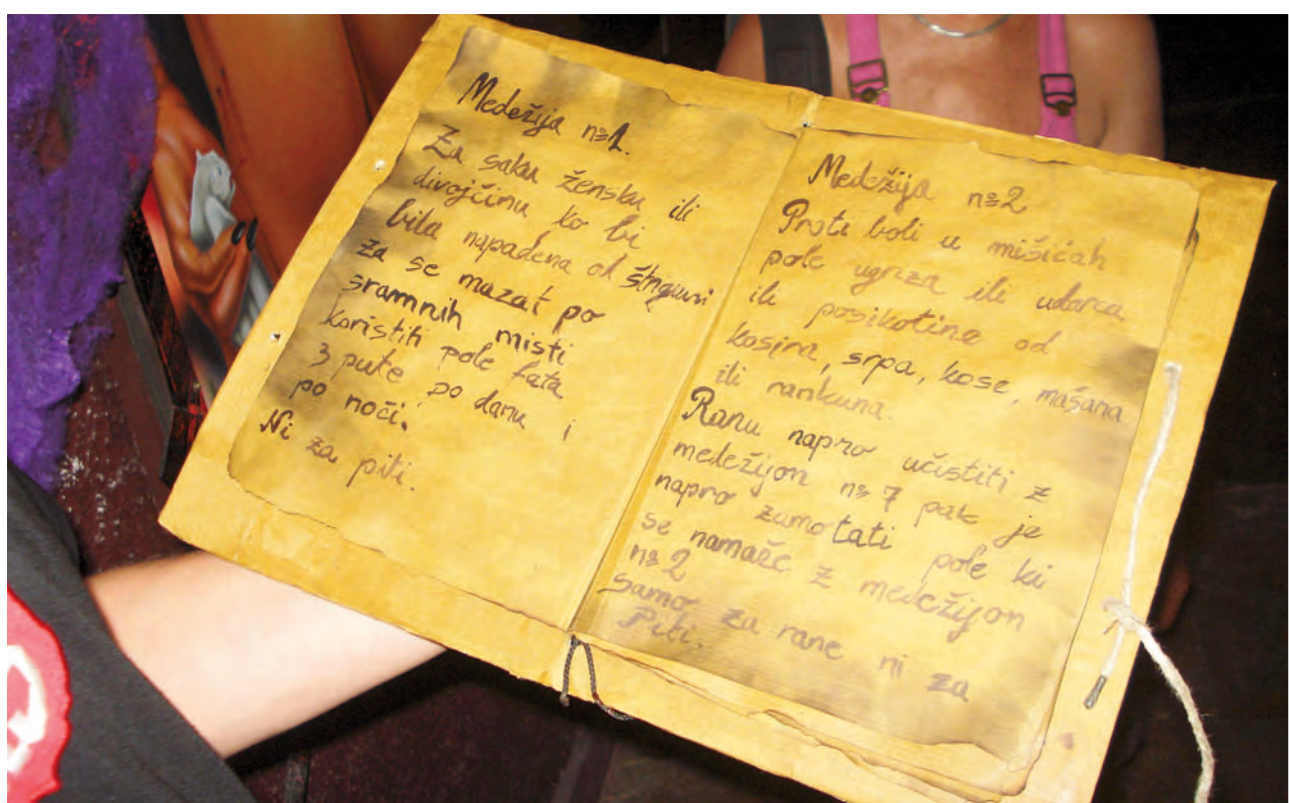 Medežija nº1.
Za saku žensku ili
divojčinu ko bi
bila napadena od štriguni
za se mazat po
sramnih misti
koristiti pole fata
3 pute po danu i
po noći!
Ni za piti.
Medežija nº2
Proti boli u mišićah
pole ugriza ili udarca
ili posikotine od
kosira, srpa, kose, mašana
ili rankuna.
Ranu napro učistiti z
medežijon nº 7 pak je
napro zamotati pole ki
se namaže z medežijon
nº2
Samo za rane ni za
Piti.